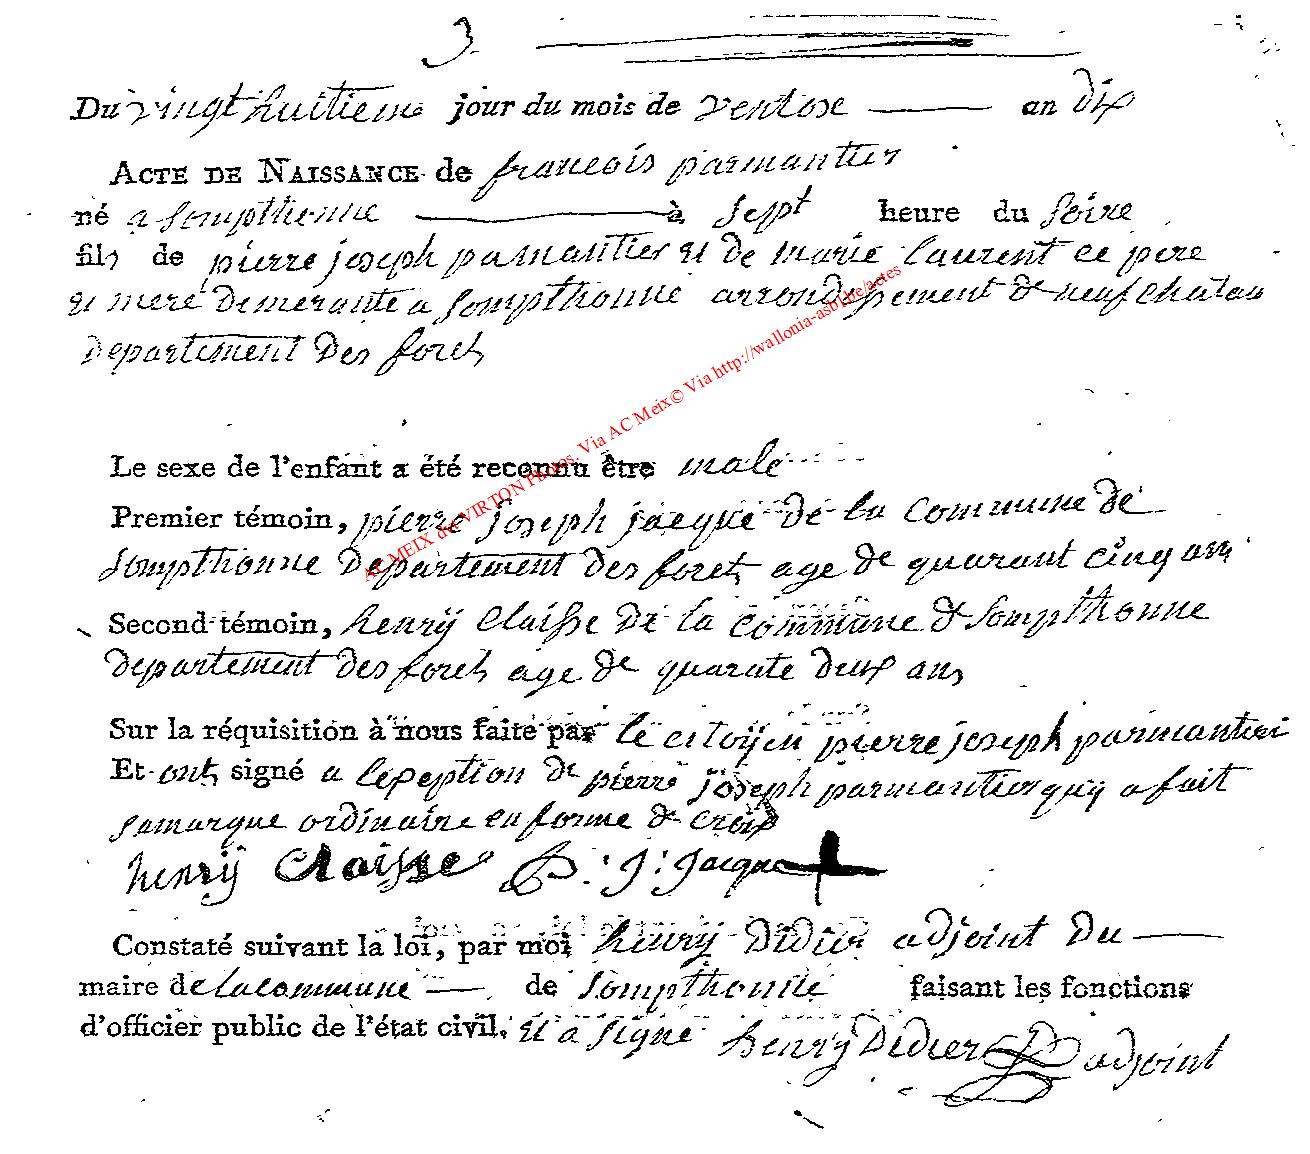 3
Du vingt huitieme jour du mois de ventose an dix
ACTE DE NAISSANCE de francois parmantier
né a Sompthonne à Sept heure du Soire
fils de pierre joseph parmantier et de marie laurent ce pere
et mere demerante a Sompthonne arrondissement de neufchatau
departement des foret
Le sexe de l'enfant a été reconnu être male
Premier témoin, pierre joseph jacque de la commune de
Sompthonne departement des foret age de quarant cinq ans
Second témoin, henrÿ Claisse de la commune de Sompthonne
departement des foret age de quarate deux ans
Sur la réquisition à nous faite par le citoÿen pierre joseph parmantier
Et ont signé a lexeption de pierre joseph parmantier quy a fait
samarque ordinaire en forme de croix
henrÿ Claisse P. J. Jacque
Constaté suivant la loi, par moi henrÿ Didier adjoint du
maire de la commune de Sompthonne faisant les fonctions
d'officier public de l'état civil. et a Signe henry Didier adjoint
AC MEIX dvt VIRTON Photos. Via AC Meix© Via http://wallonia-asbl.be/actes